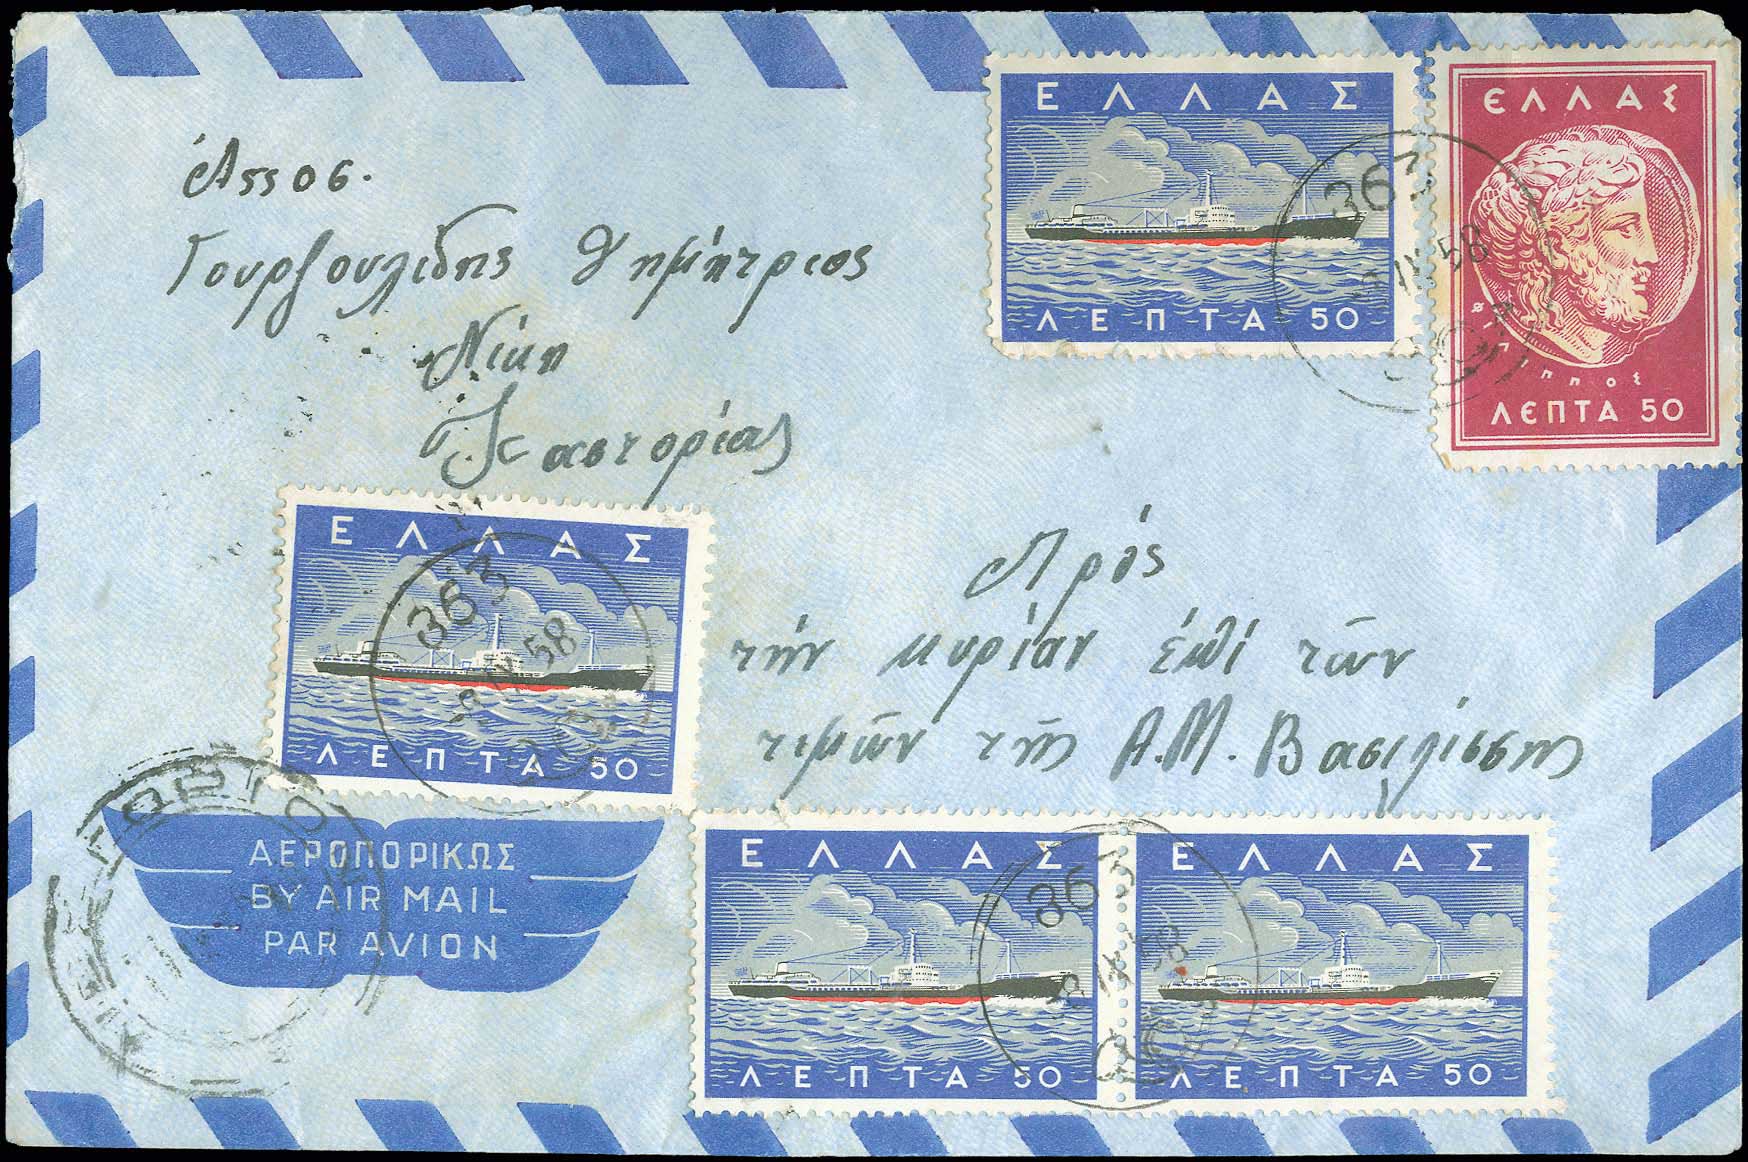 Ἀπὸς.
Γουρζουλίδης Δημήτριος
Νίκη
Καστορίας
ΕΛΛΑΣ
363
58
ΛΕΠΤΑ 50
ΕΛΛΑΣ
ΦΙΛΙΠΠΟΣ
ΛΕΠΤΑ 50
ΕΛΛΑΣ
363
8 IX 58
ΛΕΠΤΑ 50
Πρός
τήν κυρίαν ἐπί τῶν
τιμῶν τῆς Α.Μ. Βασιλίσσης
ΑΕΡΟΠΟΡΙΚΩΣ
BY AIR MAIL
PAR AVION
ΕΛΛΑΣ
363
8 IX 58
ΛΕΠΤΑ 50
ΕΛΛΑΣ
ΛΕΠΤΑ 50